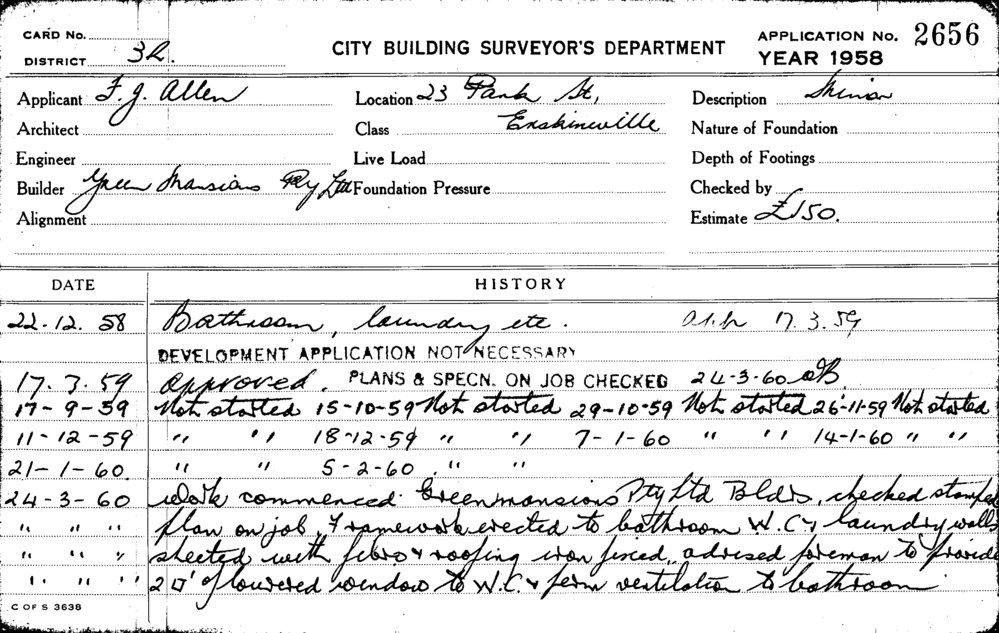 CARD No.
DISTRICT 3R.
CITY BUILDING SURVEYOR'S DEPARTMENT
APPLICATION No. 2656
YEAR 1958
Applicant F. J. Allen
Location 23 Park St,
Description Minor
Architect
Class Erskineville
Nature of Foundation
Engineer
Live Load
Depth of Footings
Builder Green Mansions Pty Ltd
Foundation Pressure
Checked by
Alignment
Estimate £150.
DATE HISTORY
22.12.58 Bathroom, laundry etc. 17.3.59
DEVELOPMENT APPLICATION NOT NECESSARY
17.3.59 Approved. PLANS & SPECN. ON JOB CHECKED 24-3-60
17-9-59 Not started 15-10-59 Not started 29-10-59 Not started 26-11-59 Not started
11-12-59 " " 18-12-59 " " 7-1-60 " " 14-1-60 " "
21-1-60. " " 5-2-60. " "
24-3-60 Work commenced Greenmansions Pty Ltd Bldrs, checked stamped
" " " plan on job, Framework erected to bathroom W.C & laundry walls
" " " sheeted with fibro & roofing iron fixed, advised foreman to provide
" " " 2□' louvered window to W.C. & perm ventilation to bathroom
C OF S 3638